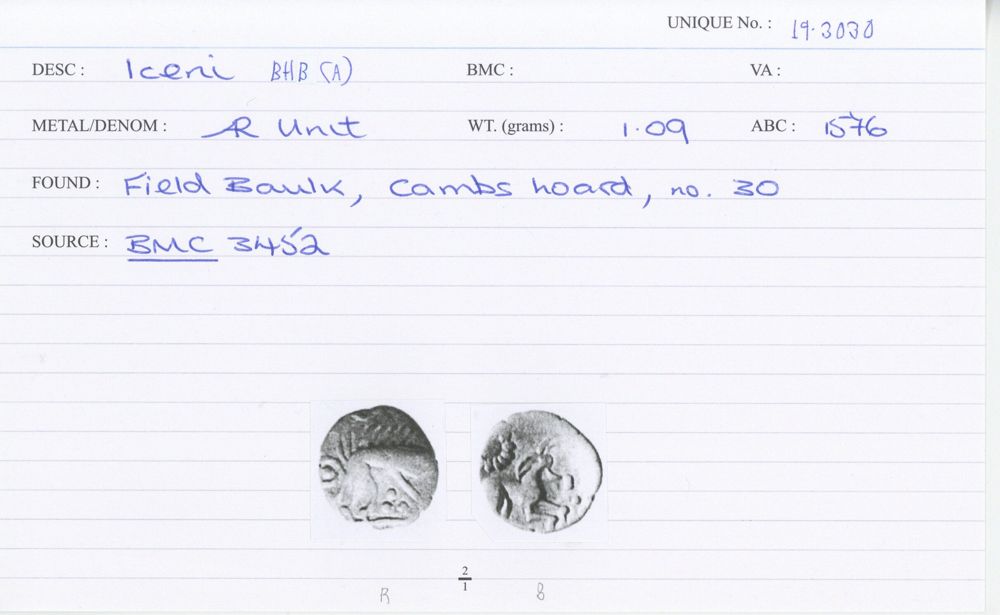 UNIQUE No. : 19.3030
DESC : Iceni BHB (A) BMC : VA :
METAL/DENOM : AR Unit WT. (grams) : 1.09 ABC : 1576
FOUND : Field Baulk, Cambs hoard, no. 30
SOURCE : BMC 3452
2
1
R B